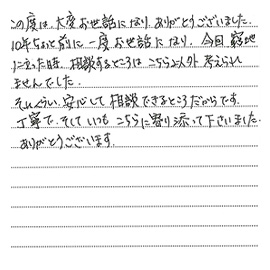 この度は、大変お世話になり、ありがとうございました。
10年ちょっと前に一度お世話になり、今回窮地
に立った時、相談するところはこちら以外考えられ
ませんでした。
そのくらい、安心して相談できるところだからです。
丁寧で、そしていつもこちらに寄り添って下さいました。
ありがとうございます。